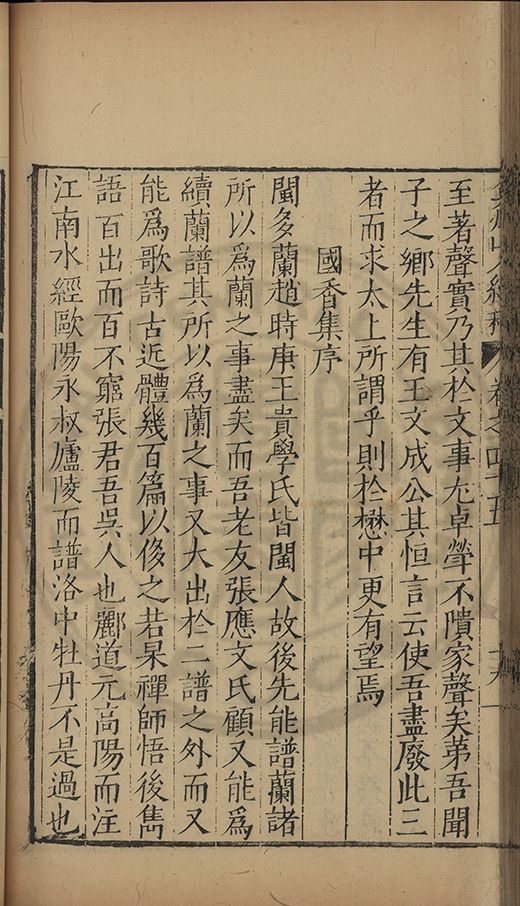 至著聲實乃其於文事尤卓犖不隤家聲矣苐吾聞
子之鄉先生有王文成公其恒言云使吾盡廢此三
者而求太上所謂乎則於懋中更有望焉
國香集序
閩多蘭趙時庚王貴學氏皆閩人故後先能譜蘭諸
所以爲蘭之事盡矣而吾老友張應文氏顧又能爲
續蘭譜其所以爲蘭之事又大出於二譜之外而又
能爲歌詩古近體幾百篇以侈之若杲禪師悟後雋
語百出而百不窮張君吾吳人也酈道元高陽而注
江南水經歐陽永叔廬陵而譜洛中牡丹不是過也